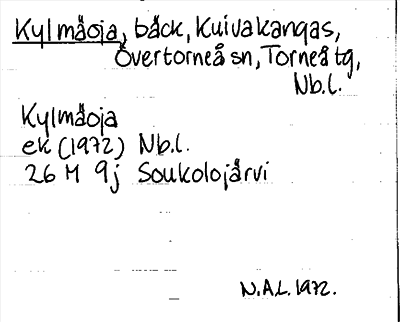 Kylmäoja, bäck, Kuivakangas,
Övertorneå sn, Torneå tg,
Nb.l.
Kylmäoja
ek (1972) Nb.l.
26 M 9j Soukolojärvi
N.A.L. 1972.